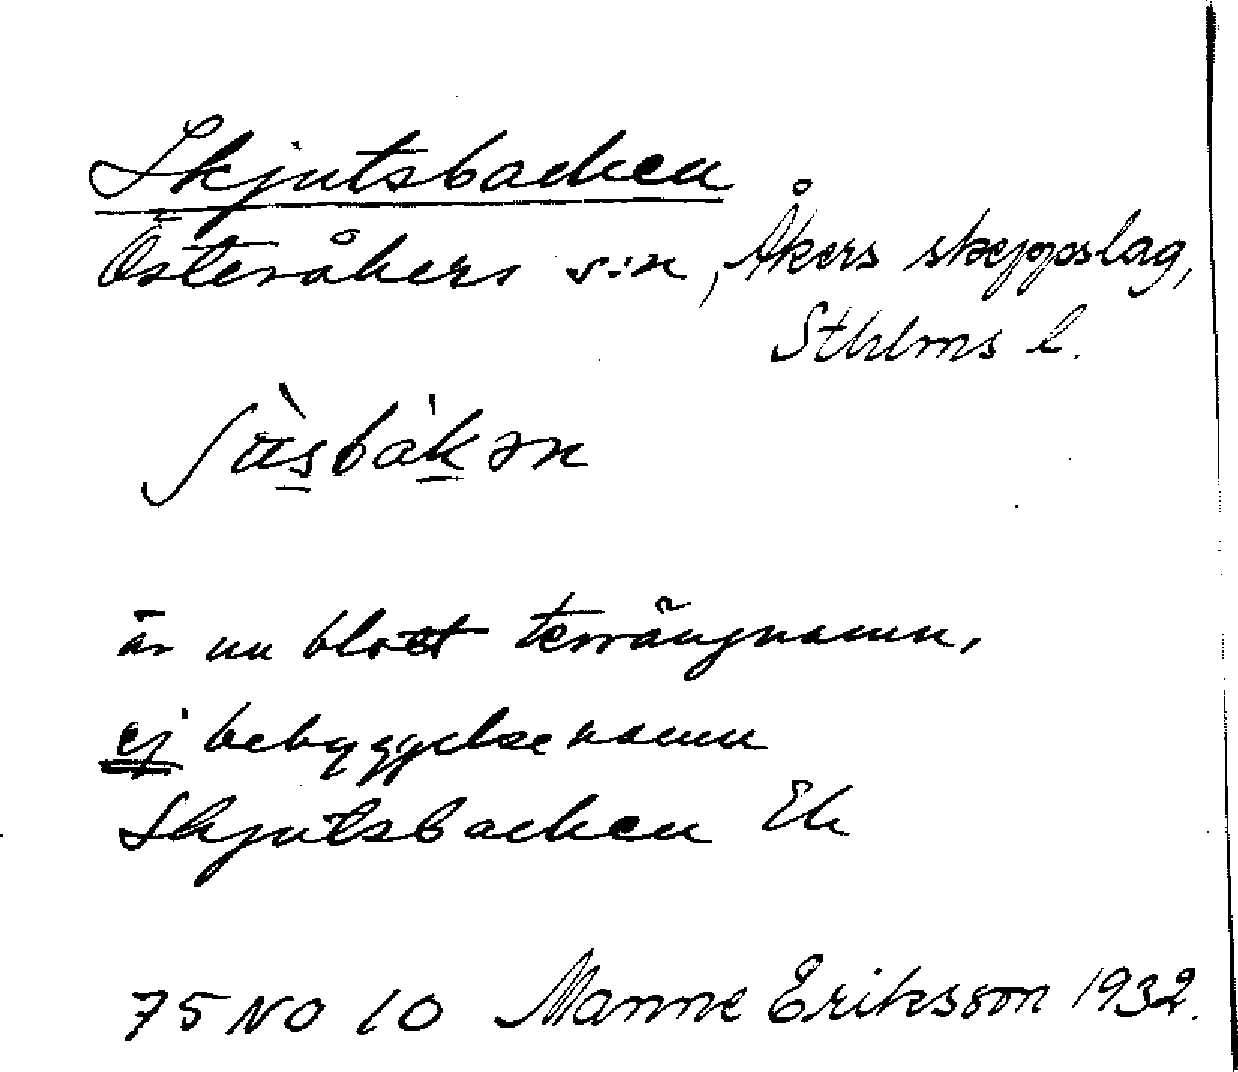 Skjutsbacken
Österåkers s:n, Åkers skeppslag,
Sthlms l.
ʃu̇̀sbak̇ən
är nu blott terrängnamn,
ej bebyggelsenamn
Skjutsbacken Ek
75 NO 10 Manne Eriksson 1932.